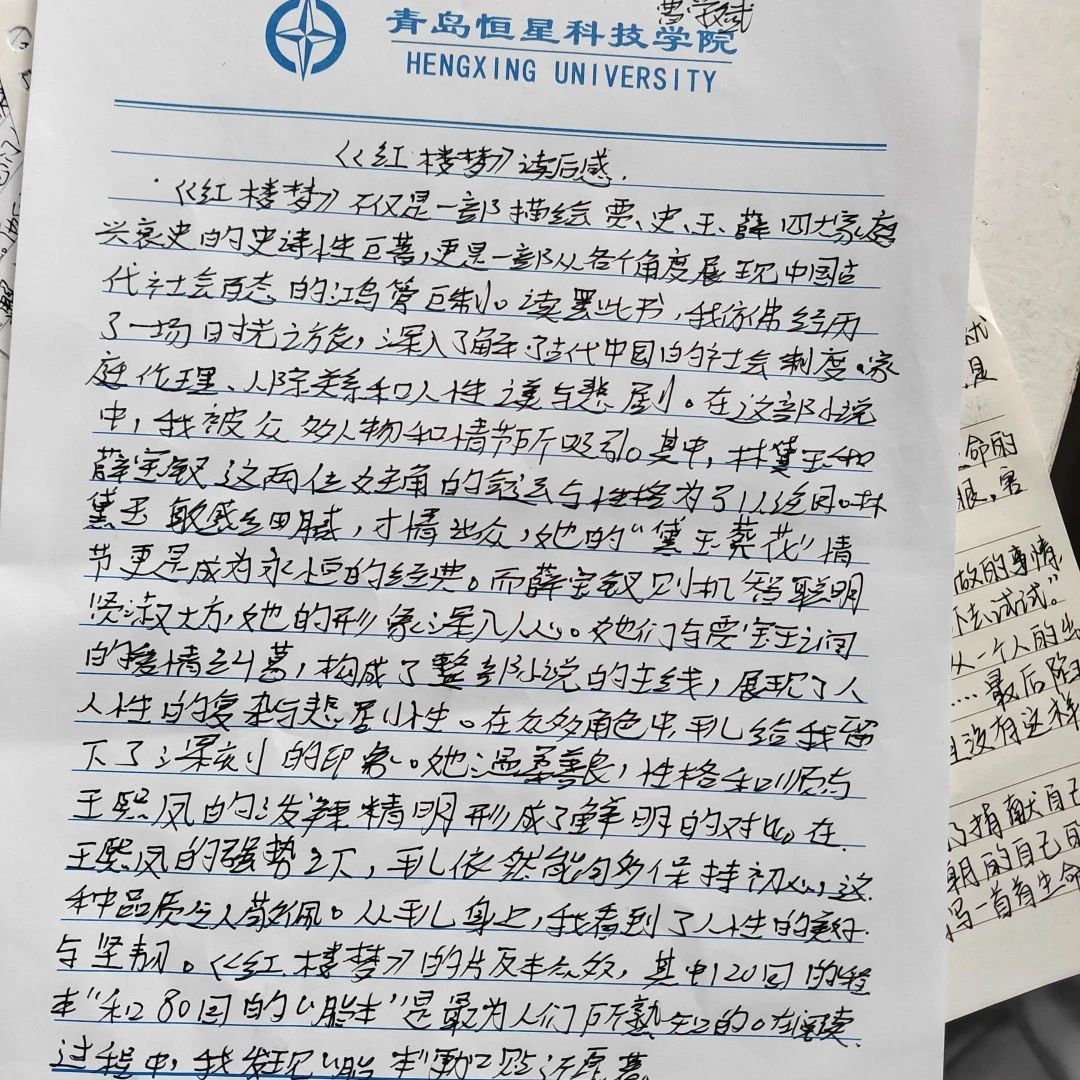 曹学斌
青岛恒星科技学院
HENGXING UNIVERSITY
《红楼梦》读后感.
《红楼梦》不仅是一部描绘贾、史、王、薛四大家庭
兴衰史的史诗性巨著,更是一部从各个角度展现中国古
代社会百态的鸿篇巨制。读罢此书,我仿佛经历
了一场时光之旅,深入了解古代中国的社会制度、家
庭伦理、人际关系和人性美与悲剧。在这部小说
中,我被众多人物和情节所吸引。其中,林黛玉和
薛宝钗这两位女主角的命运与性格为了人迥同。林
黛玉敏感细腻,才情出众,她的“黛玉葬花”情
节更是成为永恒的经典。而薛宝钗则机智聪明
贤淑大方,她的形象深入人心。她们与贾宝玉之间
的爱情纠葛,构成了整部小说的主线,展现了人
人性的复杂与悲剧性。在众多角色中,平儿给我留
下了深刻的印象。她温柔善良,性格和顺与
王熙凤的泼辣精明形成了鲜明的对比。在
王熙凤的强势之下,平儿依然能够保持初心,这
种品质令人敬佩。从平儿身上,我看到了人性的美好
与坚韧。《红楼梦》的片反本众效,其中120回的“程
本”和80回的“脂本”是最为人们所熟知的。在阅读
过程中,我发现“脂本”
是
命的
眼.害
做的事情,
下去试试。”
从一个人的出
……最后路
没有这样
了捐献自己
朝的自己的
写一首有生命